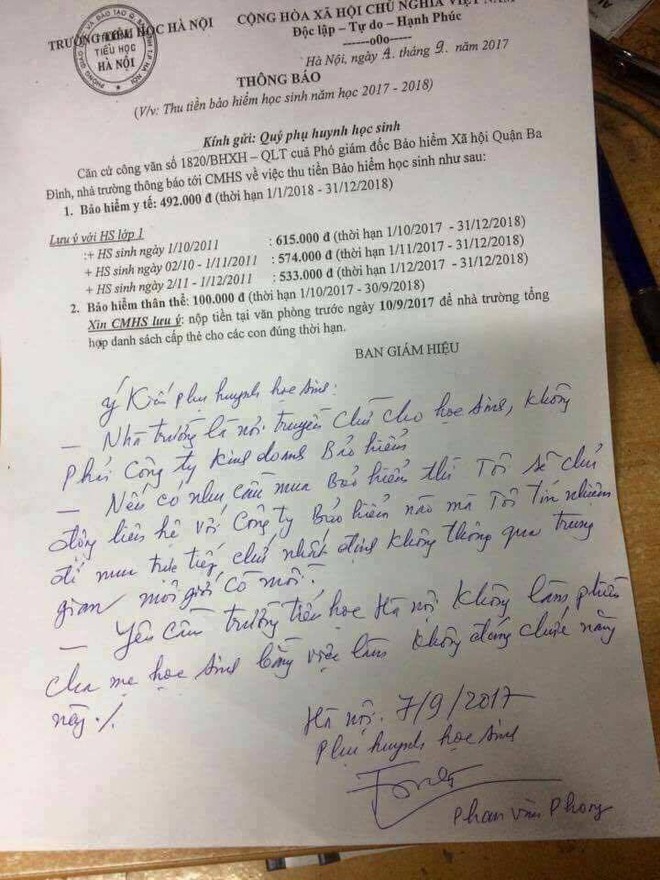 TRƯỜNG TIỂU HỌC HÀ NỘI
CỘNG HÒA XÃ HỘI CHỦ NGHĨA VIỆT NAM
Độc lập – Tự do – Hạnh Phúc
-------o0o------
TIỂU HỌC
HÀ NỘI
Hà Nội, ngày 4 tháng 9 năm 2017
THÔNG BÁO
(V/v: Thu tiền bảo hiểm học sinh năm học 2017 - 2018)
Kính gửi: Quý phụ huynh học sinh
Căn cứ công văn số 1820/BHXH – QLT cuả Phó giám đốc Bảo hiểm Xã hội Quận Ba
Đình, nhà trường thông báo tới CMHS về việc thu tiền Bảo hiểm học sinh như sau:
1. Bảo hiểm y tế: 492.000 đ (thời hạn 1/1/2018 - 31/12/2018)
Lưu ý với HS lớp 1
:+ HS sinh ngày 1/10/2011 : 615.000 đ (thời hạn 1/10/2017 - 31/12/2018)
+ HS sinh ngày 02/10 - 1/11/2011 : 574.000 đ (thời hạn 1/11/2017 - 31/12/2018)
+ HS sinh ngày 2/11 - 1/12/2011 : 533.000 đ (thời hạn 1/12/2017 - 31/12/2018)
2. Bảo hiểm thân thể: 100.000 đ (thời hạn 1/10/2017 - 30/9/2018)
Xin CMHS lưu ý: nộp tiền tại văn phòng trước ngày 10/9/2017 để nhà trường tổng
hợp danh sách cấp thẻ cho các con đúng thời hạn.
BAN GIÁM HIỆU
Ý Kiến phụ huynh học sinh:
— Nhà trường là nơi truyền chữ cho học sinh, không
phải Công ty kinh doanh Bảo hiểm
— Nếu có nhu cầu mua Bảo hiểm thì Tôi sẽ chủ
động liên hệ với Công ty Bảo hiểm nào mà Tôi tín nhiệm
để mua trực tiếp, chứ nhất định không thông qua trung
gian môi giới cò mồi.
— Yêu cầu trường tiểu học Hà Nội không làm phiền
cha mẹ học sinh bằng việc làm không đúng chức năng
này ./.
Hà Nội. 7/9/2017
Phụ huynh học sinh
Phan Văn Phong